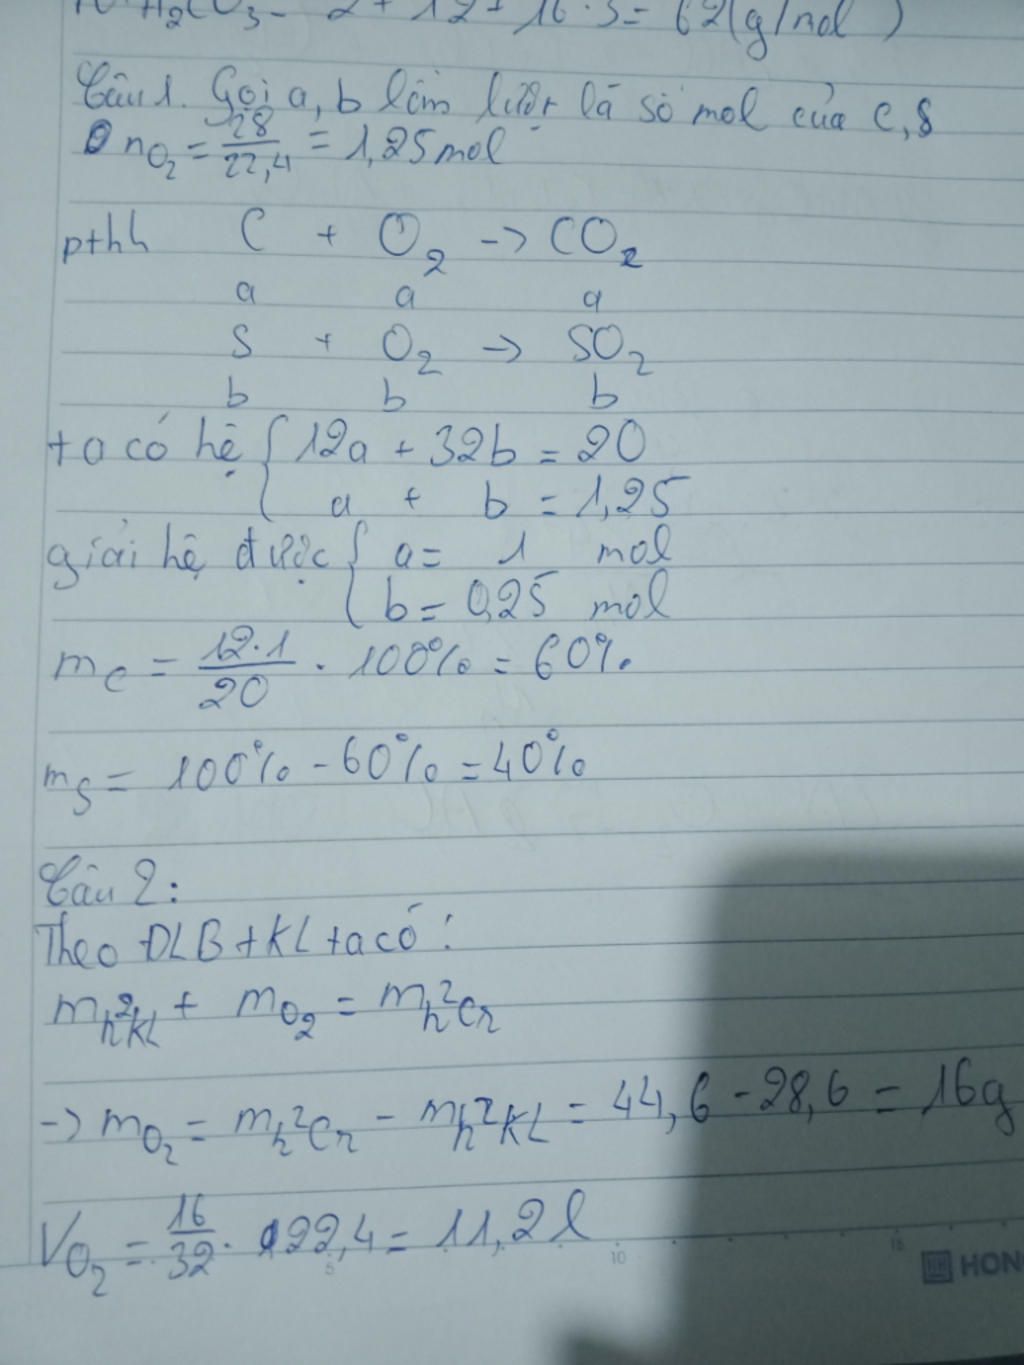 H₂CO₃ = 2 + 12 + 16 . 3 = 62 (g/mol)
Câu 1. Gọi a, b lần lượt là số mol của C, S
nO₂ = 28/22,4 = 1,25 mol
pthh C + O₂ -> CO₂
a a a
S + O₂ -> SO₂
b b b
ta có hệ { 12a + 32b = 20
a + b = 1,25
giải hệ được { a = 1 mol
b = 0,25 mol
mC = 12.1/20 . 100% = 60%
mS = 100% - 60% = 40%
Câu 2:
Theo ĐLB+KL ta có:
mh²KL + mO₂ = mh²Cr
-> mO₂ = mh²Cr - mh²KL = 44,6 - 28,6 = 16g
VO₂ = 16/32 . 22,4 = 11,2l
5 10 15
HON